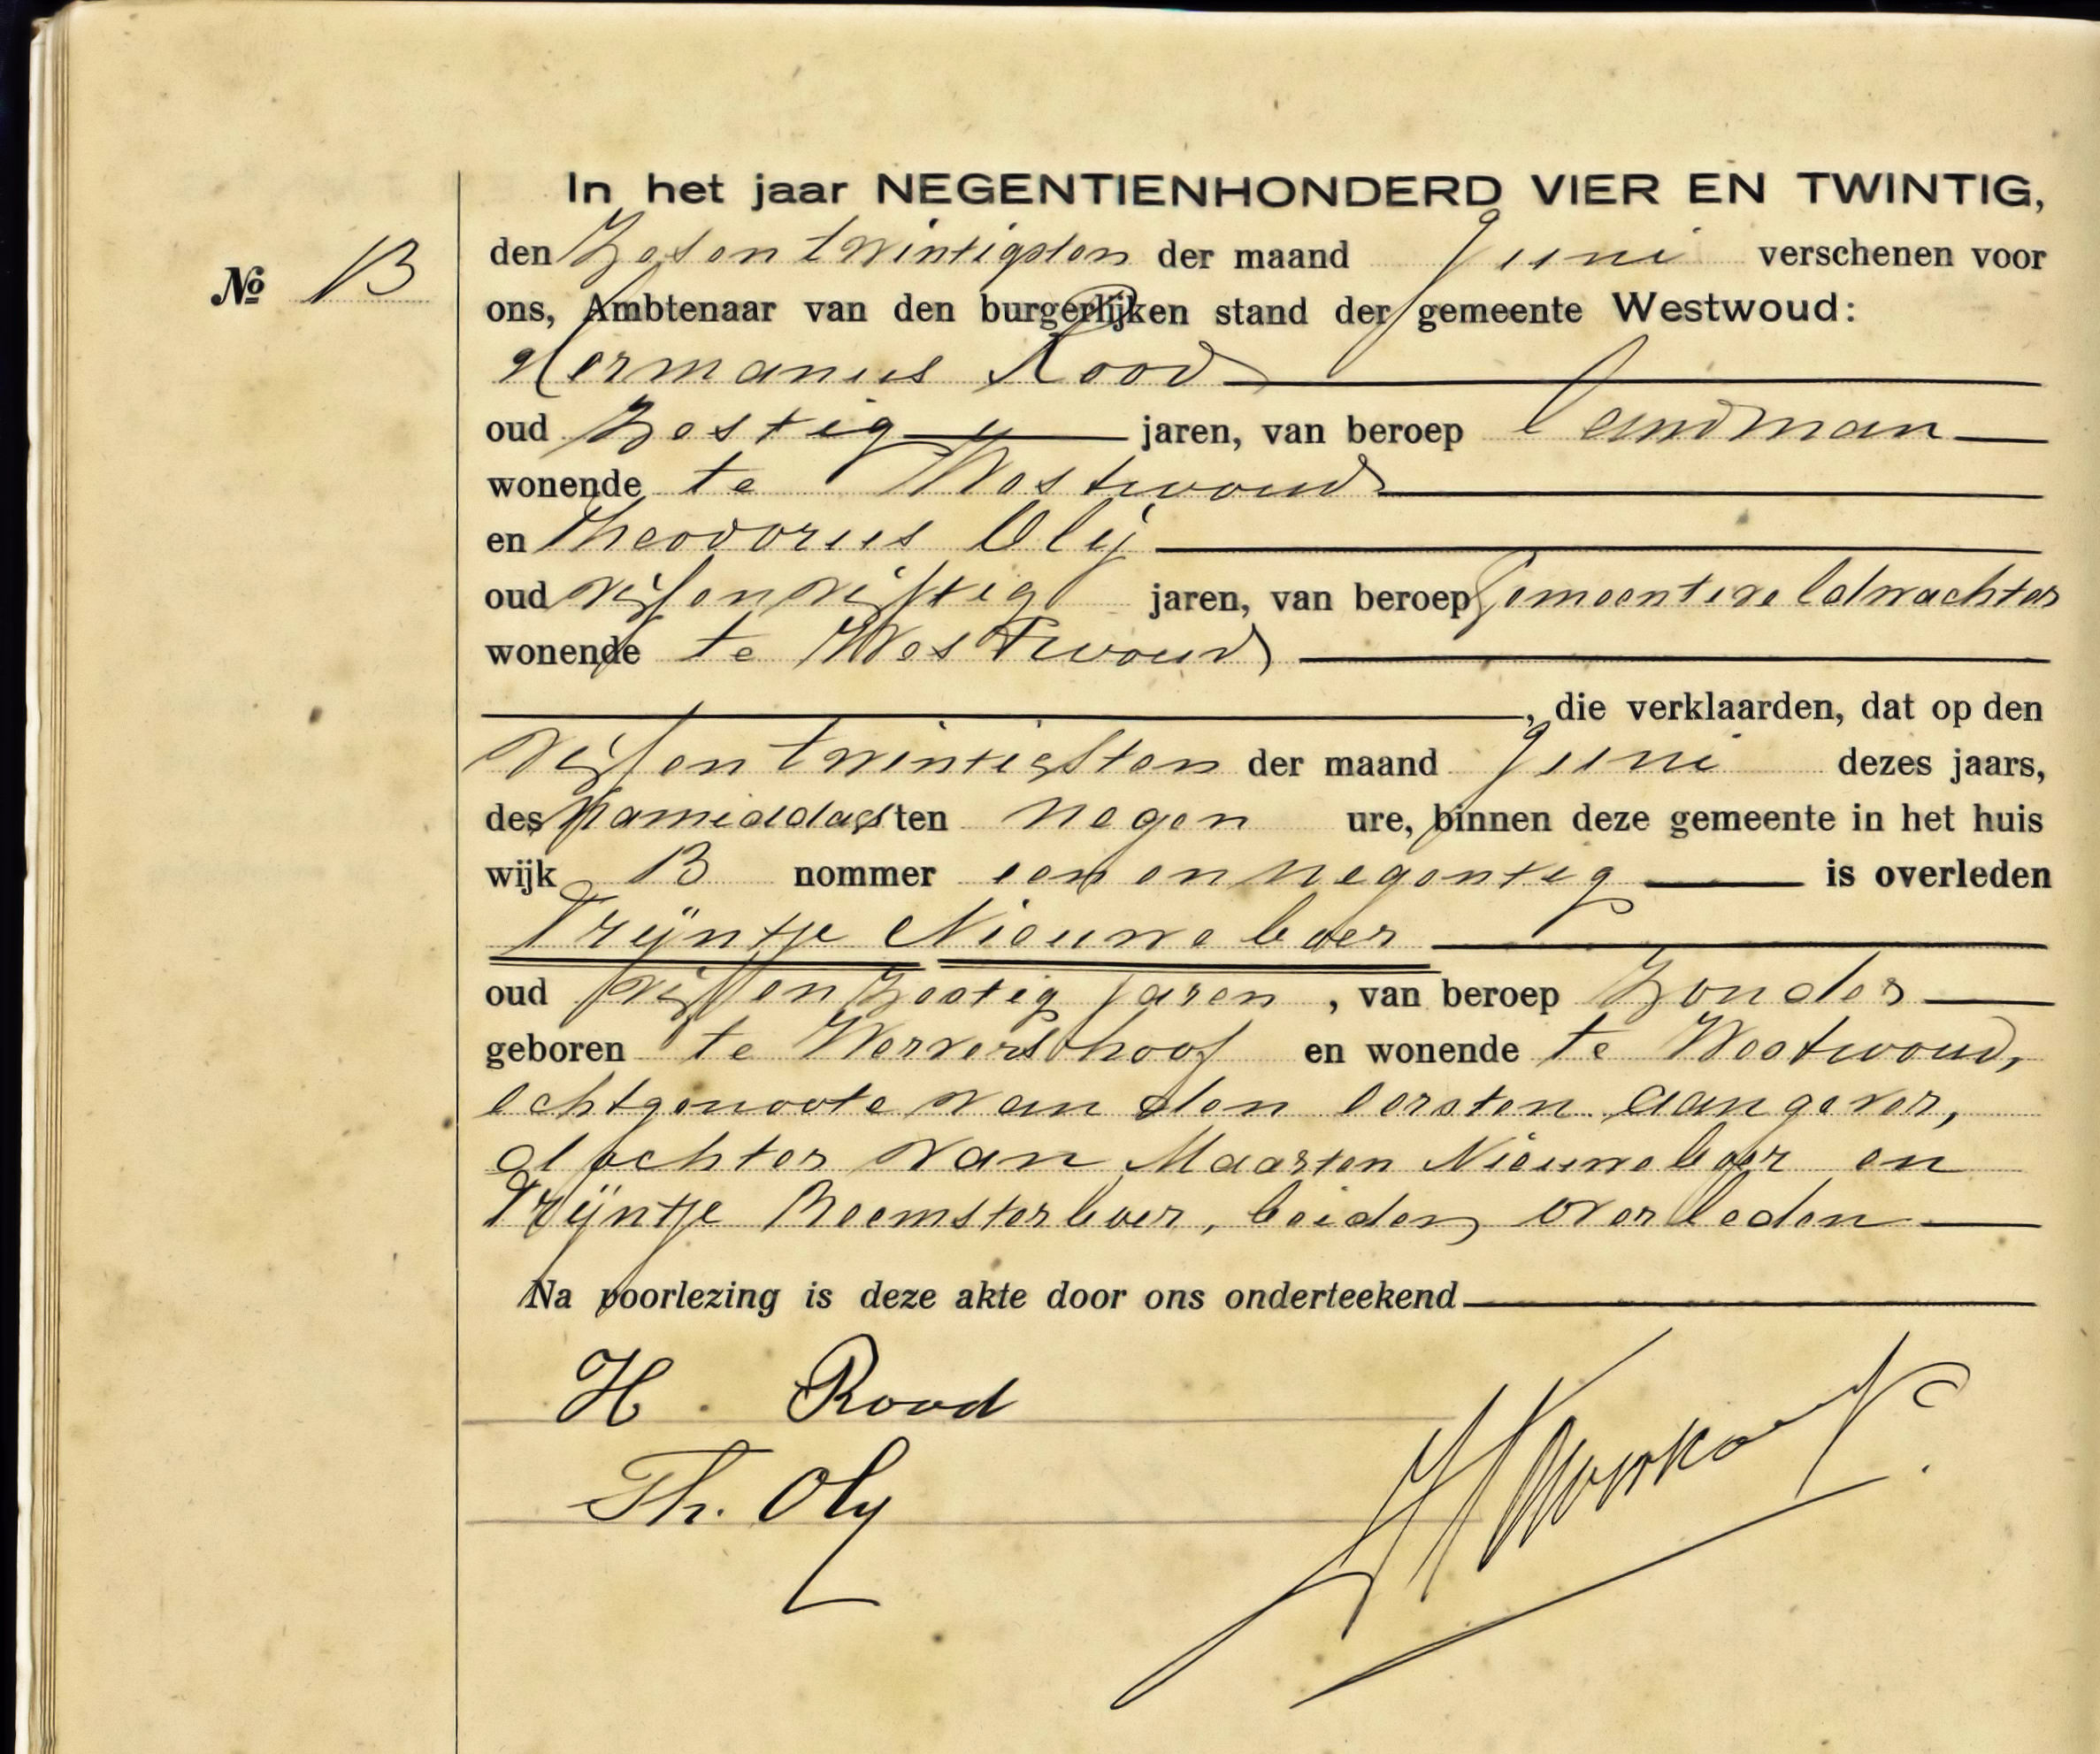 In het jaar NEGENTIENHONDERD VIER EN TWINTIG,
Nº 13
den Zesentwintigsten der maand Juni verschenen voor
ons, Ambtenaar van den burgerlijken stand der gemeente Westwoud:
Hermanus Rood
oud zestig jaren, van beroep landman
wonende te Westwoud
en Theodorus Olij
oud vijfenvijftig jaren, van beroep gemeenteveldwachter
wonende te Westwoud
, die verklaarden, dat op den
vijfentwintigsten der maand Juni dezes jaars,
des namiddags ten negen ure, binnen deze gemeente in het huis
wijk B nommer een en negentig is overleden
Trijntje Nieuweboer
oud vijfenzestig jaren, van beroep zonder
geboren te Wervershoof en wonende te Westwoud,
echtgenoote van den eersten aangever,
dochter van Maarten Nieuweboer en
Trijntje Beemsterboer, beiden overleden
Na voorlezing is deze akte door ons onderteekend
H. Rood
Th. Oly